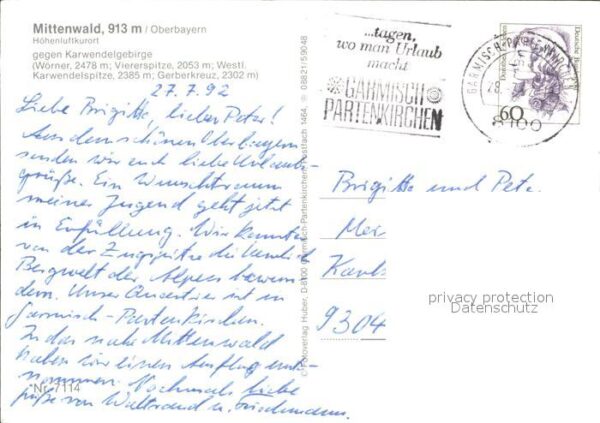 Mittenwald, 913 m / Oberbayern
Höhenluftkurort
gegen Karwendelgebirge
(Wörner, 2478 m; Viererspitze, 2053 m; Westl.
Karwendelspitze, 2385 m; Gerberkreuz, 2302 m)
27.7.92
Liebe Brigitte, lieber Peter!
Aus dem schönen Oberbayern
senden wir euch liebe Urlaubs-
grüße. Ein Wunschtraum
meiner Jugend geht jetzt
in Erfüllung. Wir konnten
von der Zugspitze die herrliche
Bergwelt der Alpen bewun-
dern. Unser Quartier ist in
Garmisch-Partenkirchen.
In das nahe Mittenwald
haben wir einen Ausflug unter-
nommen. Nochmals liebe
Grüße von Waltraud u.
Nr. 7114
© Fotoverlag Huber, D-8100 Garmisch-Partenkirchen, Postfach 1464, ☎ 08821/59048
...tagen,
wo man Urlaub
macht
GARMISCH
PARTENKIRCHEN
GARMISCH-PARTENKIRCHEN
28
8100
60
Deutsche Bundespost
Brigitte und Pete
Mei
Karl
9304
privacy protection
Datenschutz